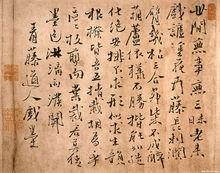 世間無事無三昧老來
戲謔塗花卉藤長刺闊
臂幾枯三合茅柴不成醉
葫蘆依樣不勝揩能如造
化絶安排不求形似求生韻
根撥皆吾五指栽胡為乎
區區枝剪而葉裁君莫猜
墨色淋漓雨撥開
青藤道人戲墨